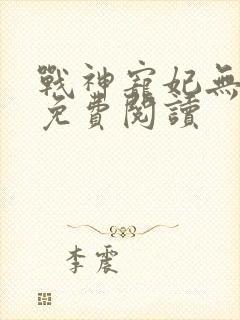 戰神寵妃無
免費閱讀
李震